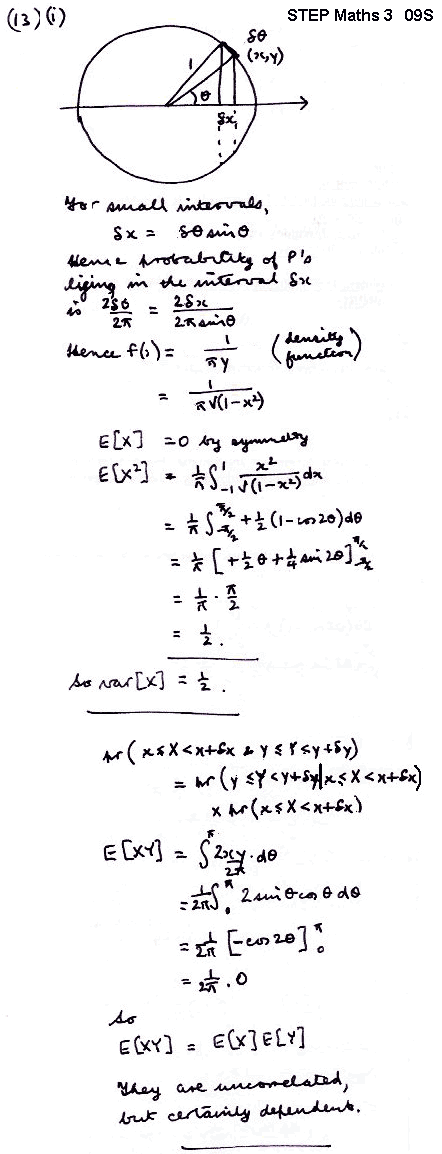 (13) (i)
STEP Maths 3 09S
δθ
(x,y)
1
θ
δx
For small intervals,
δx = δθ sinθ
Hence probability of P's
lying in the interval δx
is 2δθ/2π = 2δx/2π sinθ
Hence f(x) = 1/πy (density function)
= 1/π√(1-x²)
E[X] = 0 by symmetry
E[X²] = 1/π ∫₋₁¹ x²/√(1-x²) dx
= 1/π ∫_{-π/2}^{π/2} +½(1-cos2θ)dθ
= 1/π [+½θ + ¼ sin 2θ]_{-π/2}^{π/2}
= 1/π · π/2
= ½.
So var[X] = ½.
pr(x ≤ X < x+δx & y ≤ Y ≤ y+δy)
= pr(y ≤ Y < y+δy | x ≤ X < x+δx)
× pr(x ≤ X < x+δx)
E[XY] = ∫^π 2xy/2π · dθ
= 1/2π ∫₀^π 2 sinθ cosθ dθ
= 1/2π [-cos 2θ]₀^π
= 1/2π . 0
So
E[XY] = E[X]E[Y]
They are uncorrelated,
but certainly dependent.